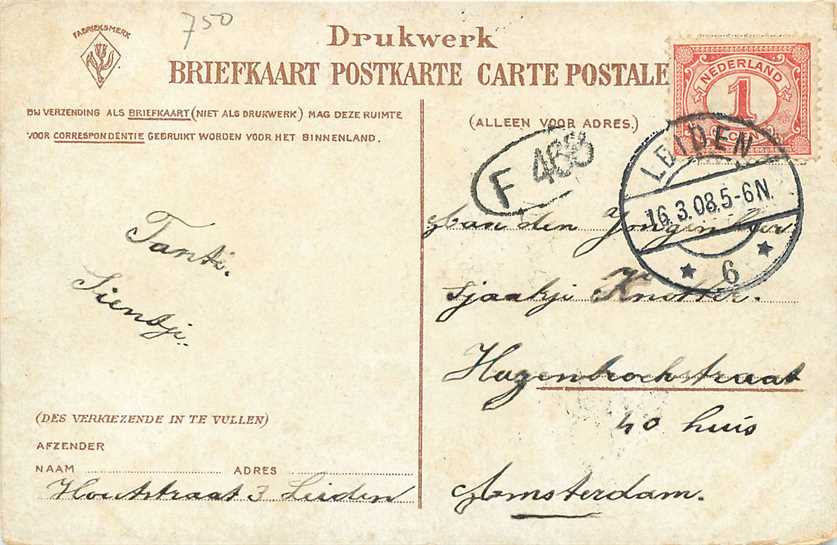 750
FABRIEKSMERK
Drukwerk
BRIEFKAART POSTKARTE CARTE POSTALE
NEDERLAND
1
CENT
BIJ VERZENDING ALS BRIEFKAART (NIET ALS DRUKWERK) MAG DEZE RUIMTE
VOOR CORRESPONDENTIE GEBRUIKT WORDEN VOOR HET BINNENLAND.
(ALLEEN VOOR ADRES.)
F 468
LEIDEN
16.3.08.5-6N.
6
Tante.
Sientje.
Aan den Jongenheer
Sjaakje Knotter.
Hazenbroekstraat
40 huis
Amsterdam.
(DES VERKIEZENDE IN TE VULLEN)
AFZENDER
NAAM ADRES
Houtstraat 3 Leiden